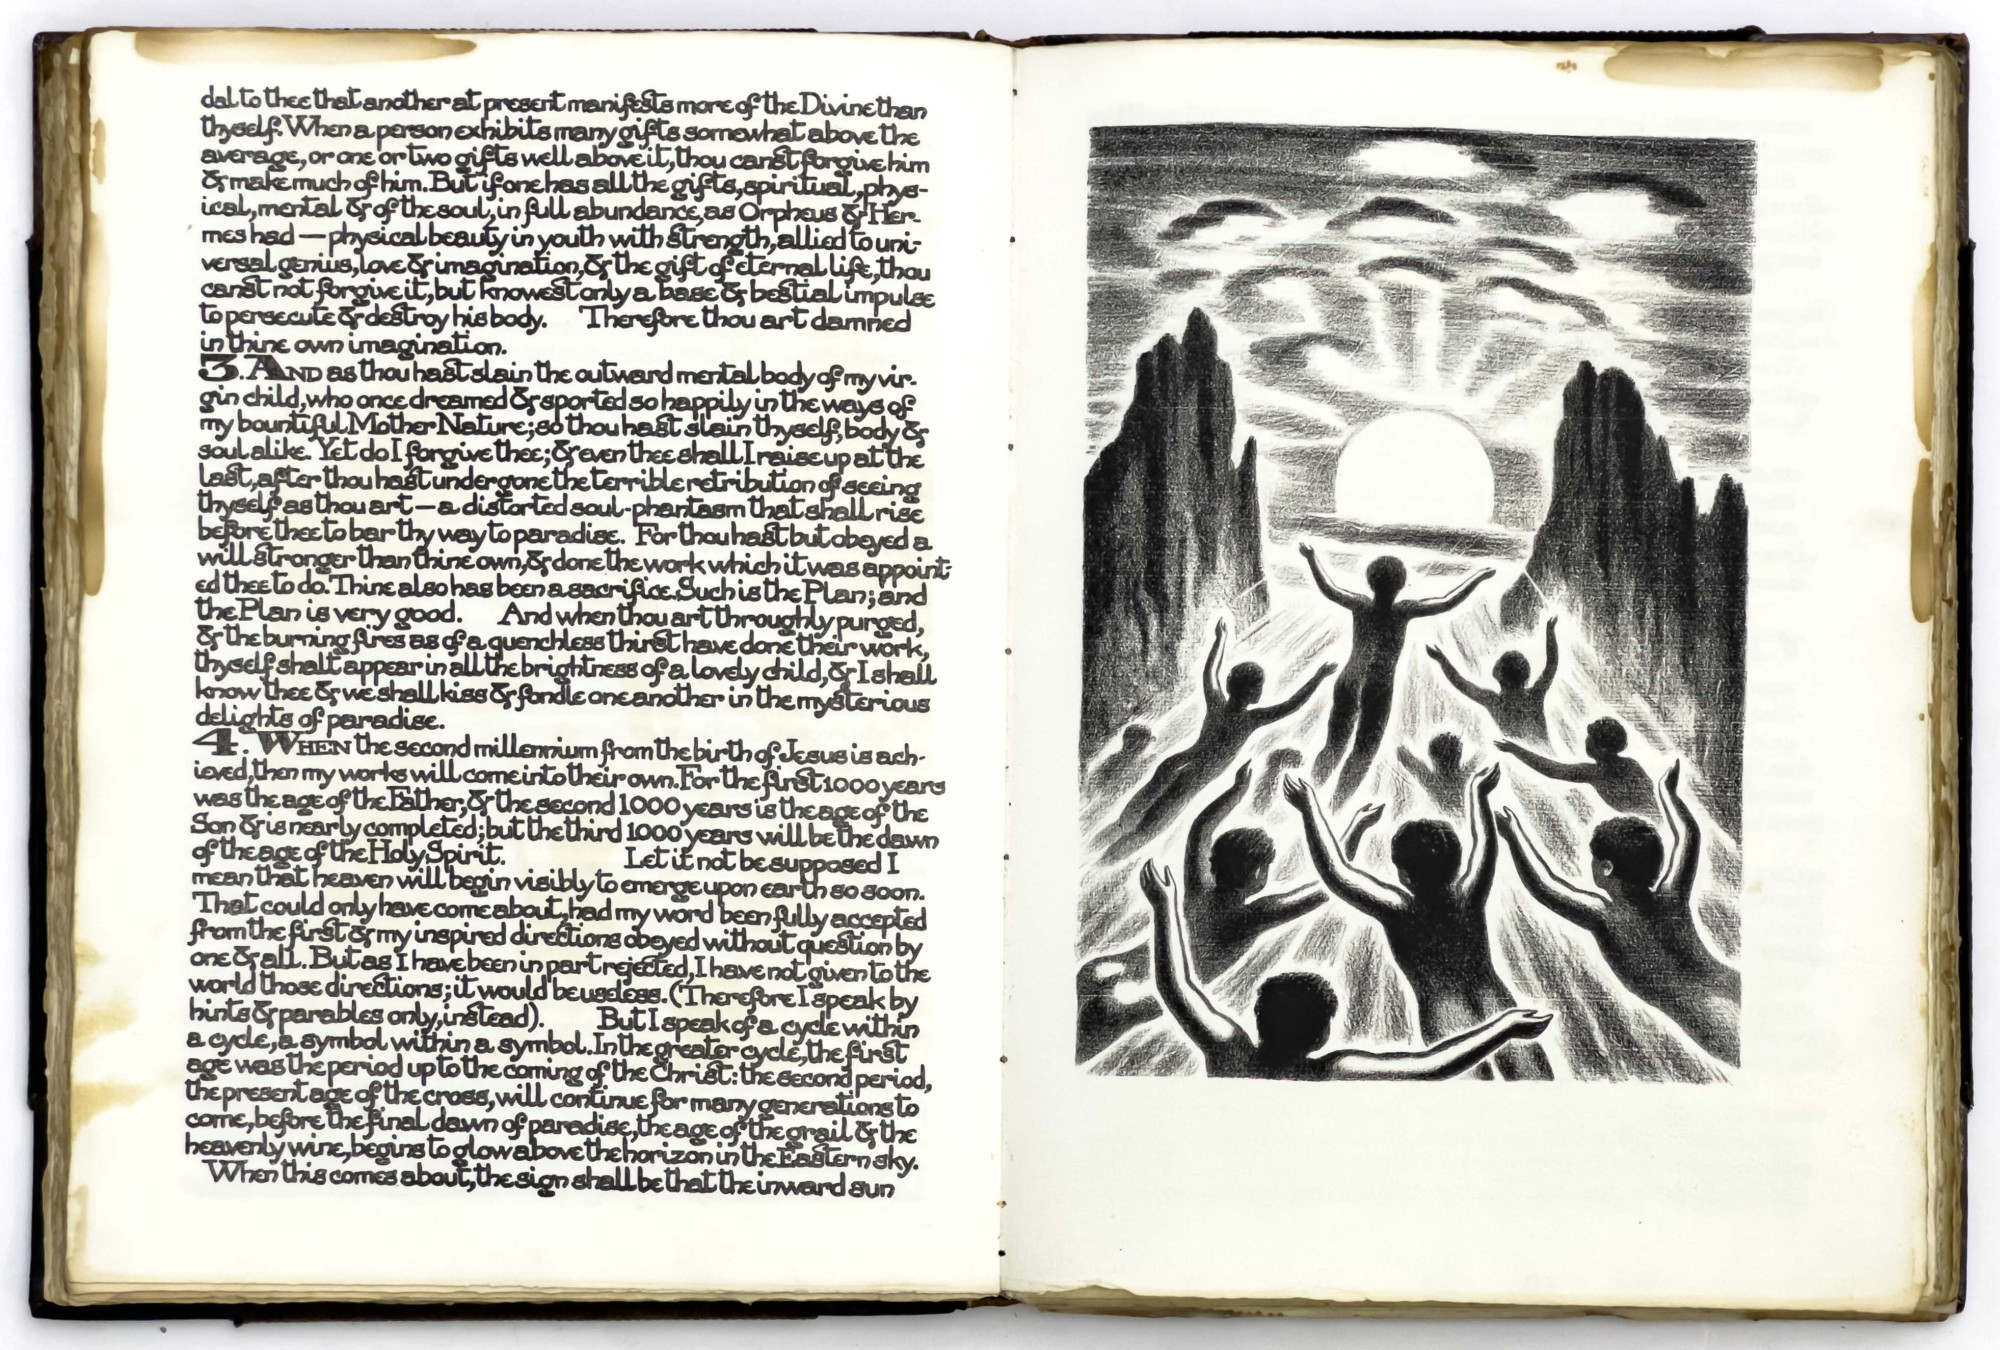 dal to thee that another at present manifests more of the Divine than
thyself. When a person exhibits many gifts somewhat above the
average, or one or two gifts well above it, thou canst forgive him
& make much of him. But if one has all the gifts, spiritual, phys-
ical, mental & of the soul, in full abundance, as Orpheus & Her-
mes had — physical beauty in youth with strength, allied to uni-
versal genius, love & imagination, & the gift of eternal life, thou
canst not forgive it, but knowest only a base & bestial impulse
to persecute & destroy his body. Therefore thou art damned
in thine own imagination.
3. AND as thou hast slain the outward mental body of my vir-
gin child, who once dreamed & sported so happily in the ways of
my bountiful Mother Nature; so thou hast slain thyself, body &
soul alike. Yet do I forgive thee; & even thee shall I raise up at the
last, after thou hast undergone the terrible retribution of seeing
thyself as thou art — a distorted soul-phantasm that shall rise
before thee to bar thy way to paradise. For thou hast but obeyed a
will stronger than thine own, & done the work which it was appoint-
ed thee to do. Thine also has been a sacrifice. Such is the Plan; and
the Plan is very good. And when thou art throughly purged,
& the burning fires as of a quenchless thirst have done their work,
thyself shalt appear in all the brightness of a lovely child, & I shall
know thee & we shall kiss & fondle one another in the mysterious
delights of paradise.
4. WHEN the second millennium from the birth of Jesus is ach-
ieved, then my works will come into their own. For the first 1000 years
was the age of the Father, & the second 1000 years is the age of the
Son & is nearly completed; but the third 1000 years will be the dawn
of the age of the Holy Spirit. Let it not be supposed I
mean that heaven will begin visibly to emerge upon earth so soon.
That could only have come about, had my word been fully accepted
from the first & my inspired directions obeyed without question by
one & all. But as I have been in part rejected, I have not given to the
world those directions; it would be useless. (Therefore I speak by
hints & parables only, instead). But I speak of a cycle within
a cycle, a symbol within a symbol. In the greater cycle, the first
age was the period up to the coming of the Christ: the second period,
the present age of the cross, will continue for many generations to
come, before the final dawn of paradise, the age of the grail & the
heavenly wine, begins to glow above the horizon in the Eastern sky.
When this comes about, the sign shall be that the inward sun